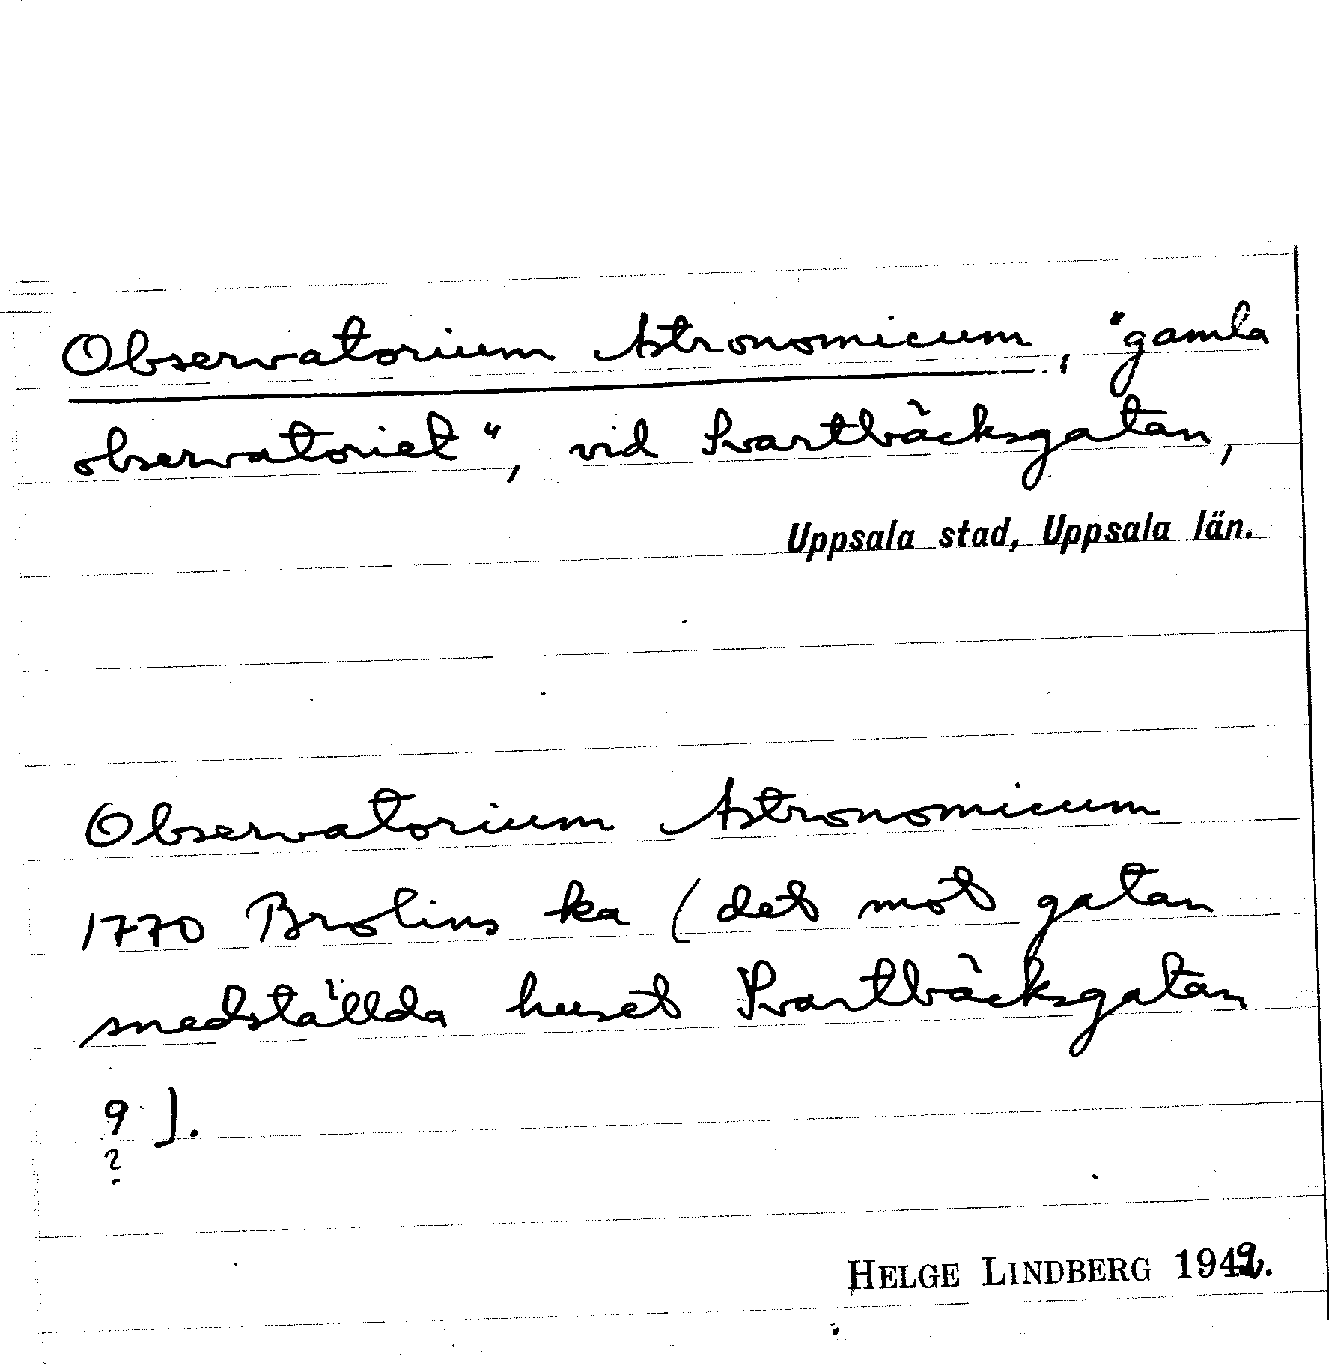 Observatorium Astronomicum, "gamla
observatoriet", vid Svartbäcksgatan,
Uppsala stad, Uppsala län.
Observatorium Astronomicum
1770 Brolins ka (det mot gatan
snedställda huset Svartbäcksgatan
9).
?
HELGE LINDBERG 1949.